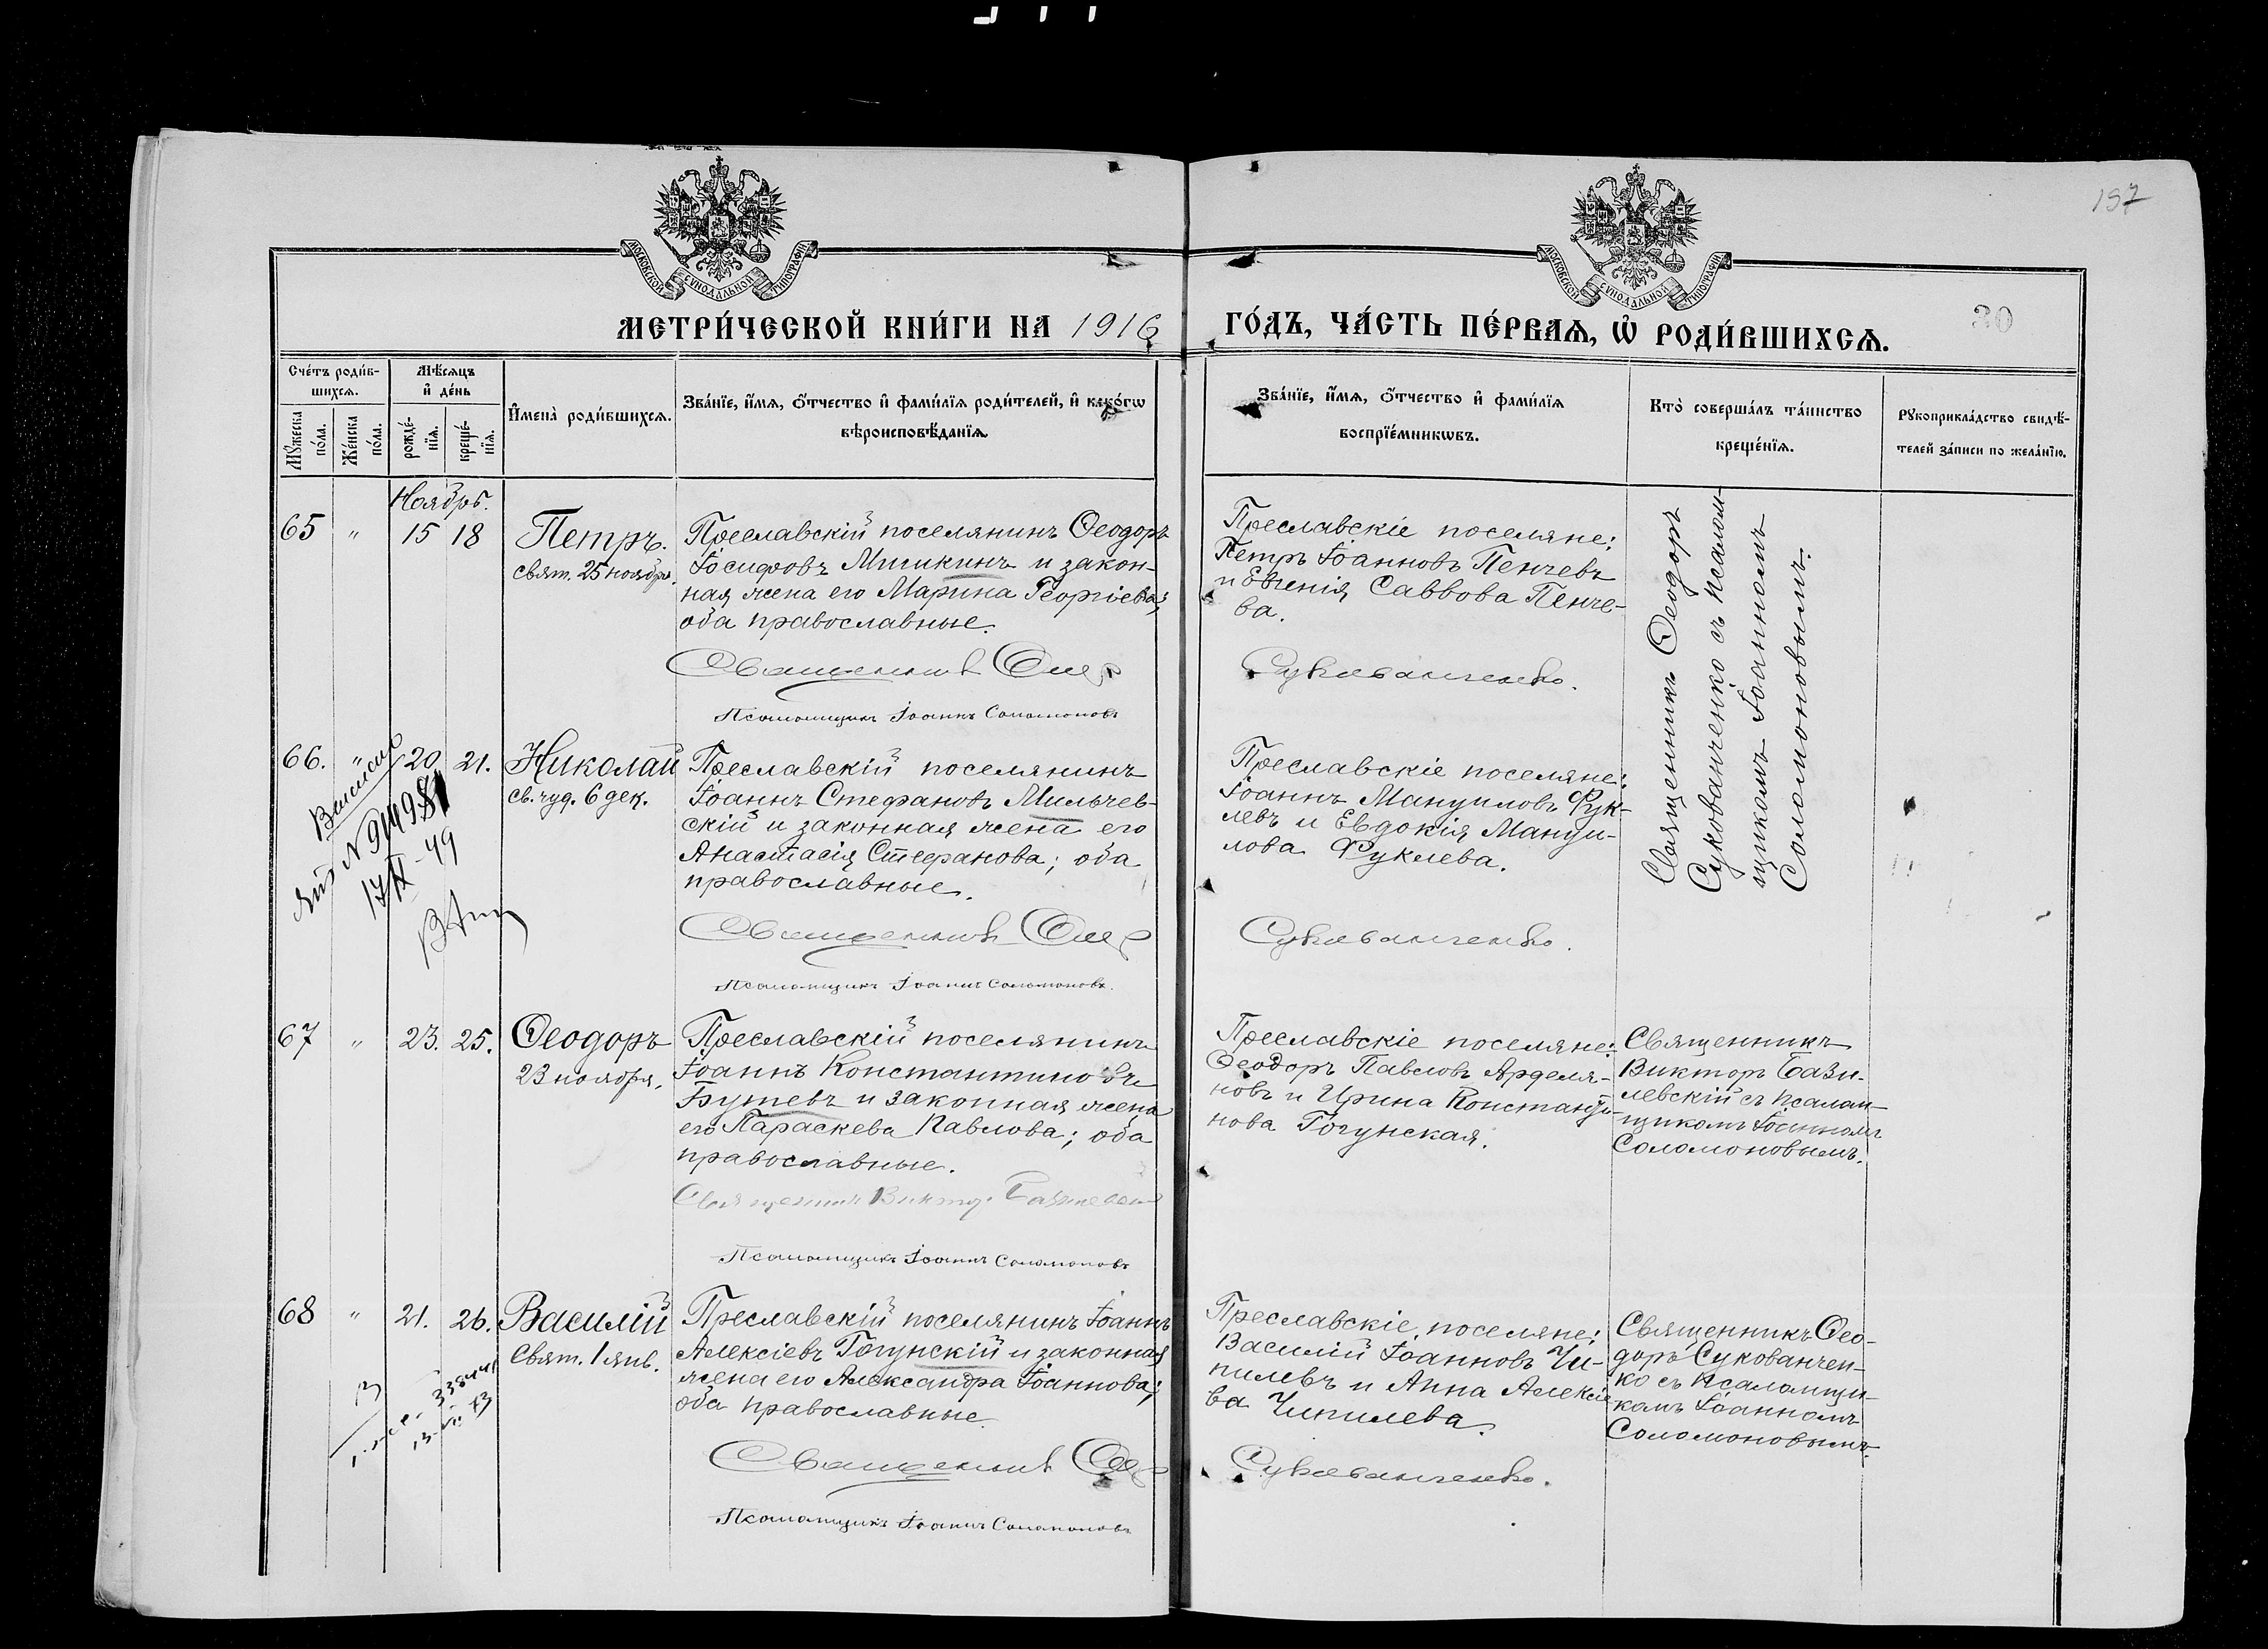 197
МОСКОВСКОЙ СѴНОДАЛЬНОЙ ТИПОГРАФІИ
МОСКОВСКОЙ СѴНОДАЛЬНОЙ ТИПОГРАФІИ
МЕТРИ́ЧЕСКОЙ КНИ́ГИ НА 1916 ГО́ДЪ, ЧА́СТЬ ПЕ́РВАѦ, Ѡ҆ РОДИ́ВШИХСѦ.
30
Сче́тъ роди́в-
шихсѧ.
Мꙋ́жеска
по́ла.
Же́нска
по́ла.
Мѣ́сѧцъ
и҆ де́нь
рожде́-
нїѧ.
креще́-
нїѧ.
И҆мена̀ роди́вшихсѧ.
Зва́нїе, и҆́мѧ, ѻ҆́тчество и҆ фами́лїѧ роди́телей, и҆ како́гѡ
вѣроисповѣ́данїѧ.
Зва́нїе, и҆́мѧ, ѻ҆́тчество и҆ фами́лїѧ
воспрїе́мникѡвъ.
Кто̀ соверша́лъ та́инство
креще́нїѧ.
Рꙋкоприкла́дство свидѣ́-
телей за́писи по жела́нїю.
Ноябрь.
65 " 15 18
Петръ.
свят. 25 ноября.
Преславскій поселянинъ Ѳеодоръ
Іосифовъ Мишкинъ и закон-
ная жена его Марина Георгіева;
оба православные.
Священникъ Ѳеод
Псаломщикъ Іоаннъ Соломоновъ
Преславскіе поселяне:
Петръ Іоанновъ Пенчевъ
и Евгенія Саввова Пенче-
ва.
Сукованченко.
Священникъ Ѳеодоръ
Сукованченко съ псалом-
щикомъ Іоанномъ
Соломоновымъ.
66. " 20. 21.
Николай
св. чуд. 6 дек.
Преславскій поселянинъ
Іоаннъ Стефановъ Мильчев-
скій и законная жена его
Анастасія Стефанова; оба
православные.
Священникъ Ѳеод
Псаломщикъ Іоаннъ Соломоновъ.
Преславскіе поселяне:
Іоаннъ Мануиловъ Фук-
левъ и Евдокія Мануи-
лова Фуклева.
Сукованченко.
67 " 23. 25.
Ѳеодоръ
23 ноября.
Преславскій поселянинъ
Іоаннъ Константиновъ
Бутевъ и законная жена
его Параскева Павлова; оба
православные.
Священникъ Виктор Базилевскій
Псаломщикъ Іоаннъ Соломоновъ
Преславскіе поселяне:
Ѳеодоръ Павловъ Арделя-
новъ и Ирина Константи-
нова Гогунская.
Священникъ
Викторъ Бази-
левскій съ псалом-
щикомъ Іоанномъ
Соломоновымъ.
68 " 21. 26.
Василій
Свят. 1 янв.
Преславскій поселянинъ Іоаннъ
Алексіевъ Гогунскій и законная
жена его Александра Іоаннова;
оба православные.
Священникъ Ѳеод
Псаломщикъ Іоаннъ Соломоновъ
Преславскіе поселяне:
Василій Іоанновъ Чи-
пилевъ и Анна Алексіе-
ва Чипилева.
Сукованченко.
Священникъ Ѳео-
доръ Сукованчен-
ко съ псаломщи-
комъ Іоанномъ
Соломоновымъ.